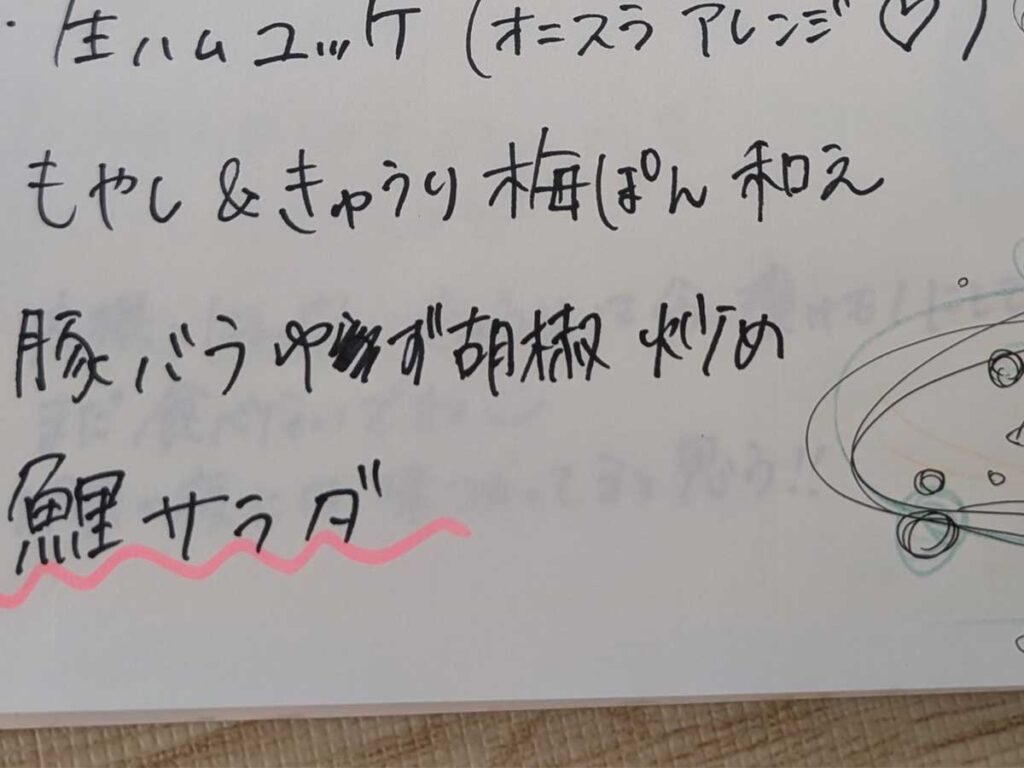 ・生ハムユッケ(オニスラアレンジ♡)
もやし&きゅうり梅ぽん和え
豚バラゆず胡椒炒め
鯉サラダ